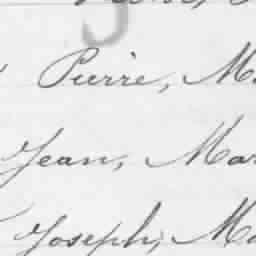 Pierre, Ma
Jean, Mar
Joseph, Ma